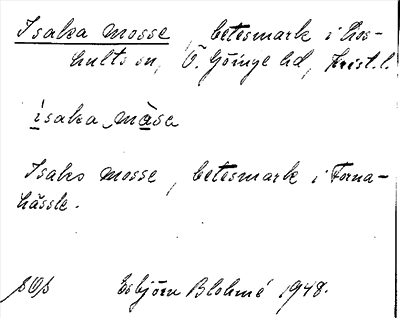 Isaka mosse, betesmark i Loshults sn, Ö. Göinge hd, Krist. l.
isaka måsa
Isaks mosse, betesmark i Fornahässle.
Esbjörn Blohmé 1948.